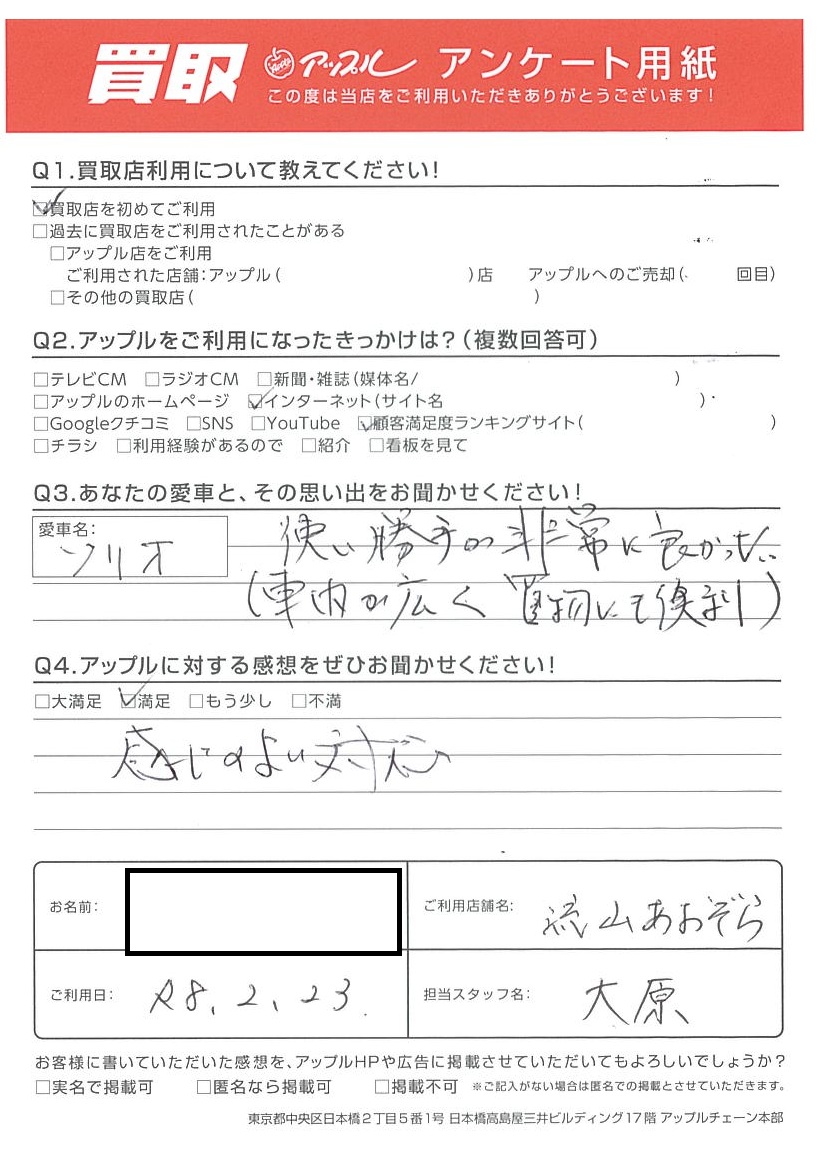 買取 Apple アップル アンケート用紙
この度は当店をご利用いただきありがとうございます!
Q1.買取店利用について教えてください!
☑買取店を初めてご利用
□過去に買取店をご利用されたことがある
□アップル店をご利用
ご利用された店舗:アップル( )店 アップルへのご売却( 回目)
□その他の買取店( )
Q2.アップルをご利用になったきっかけは?(複数回答可)
□テレビCM □ラジオCM □新聞・雑誌(媒体名/ )
□アップルのホームページ ☑インターネット(サイト名 )
□Googleクチコミ □SNS □YouTube ☑顧客満足度ランキングサイト( )
□チラシ □利用経験があるので □紹介 □看板を見て
Q3.あなたの愛車と、その思い出をお聞かせください!
愛車名:
ソリオ 使い勝手の非常に良かった
(車内が広く買物にも便利)
Q4.アップルに対する感想をぜひお聞かせください!
□大満足 ☑満足 □もう少し □不満
感じのよい対応
お名前: ご利用店舗名: 流山あおぞら
ご利用日: R8.2.23 担当スタッフ名: 大原
お客様に書いていただいた感想を、アップルHPや広告に掲載させていただいてもよろしいでしょうか?
□実名で掲載可 □匿名なら掲載可 □掲載不可 ※ご記入がない場合は匿名での掲載とさせていただきます。
東京都中央区日本橋2丁目5番1号 日本橋高島屋三井ビルディング17階 アップルチェーン本部